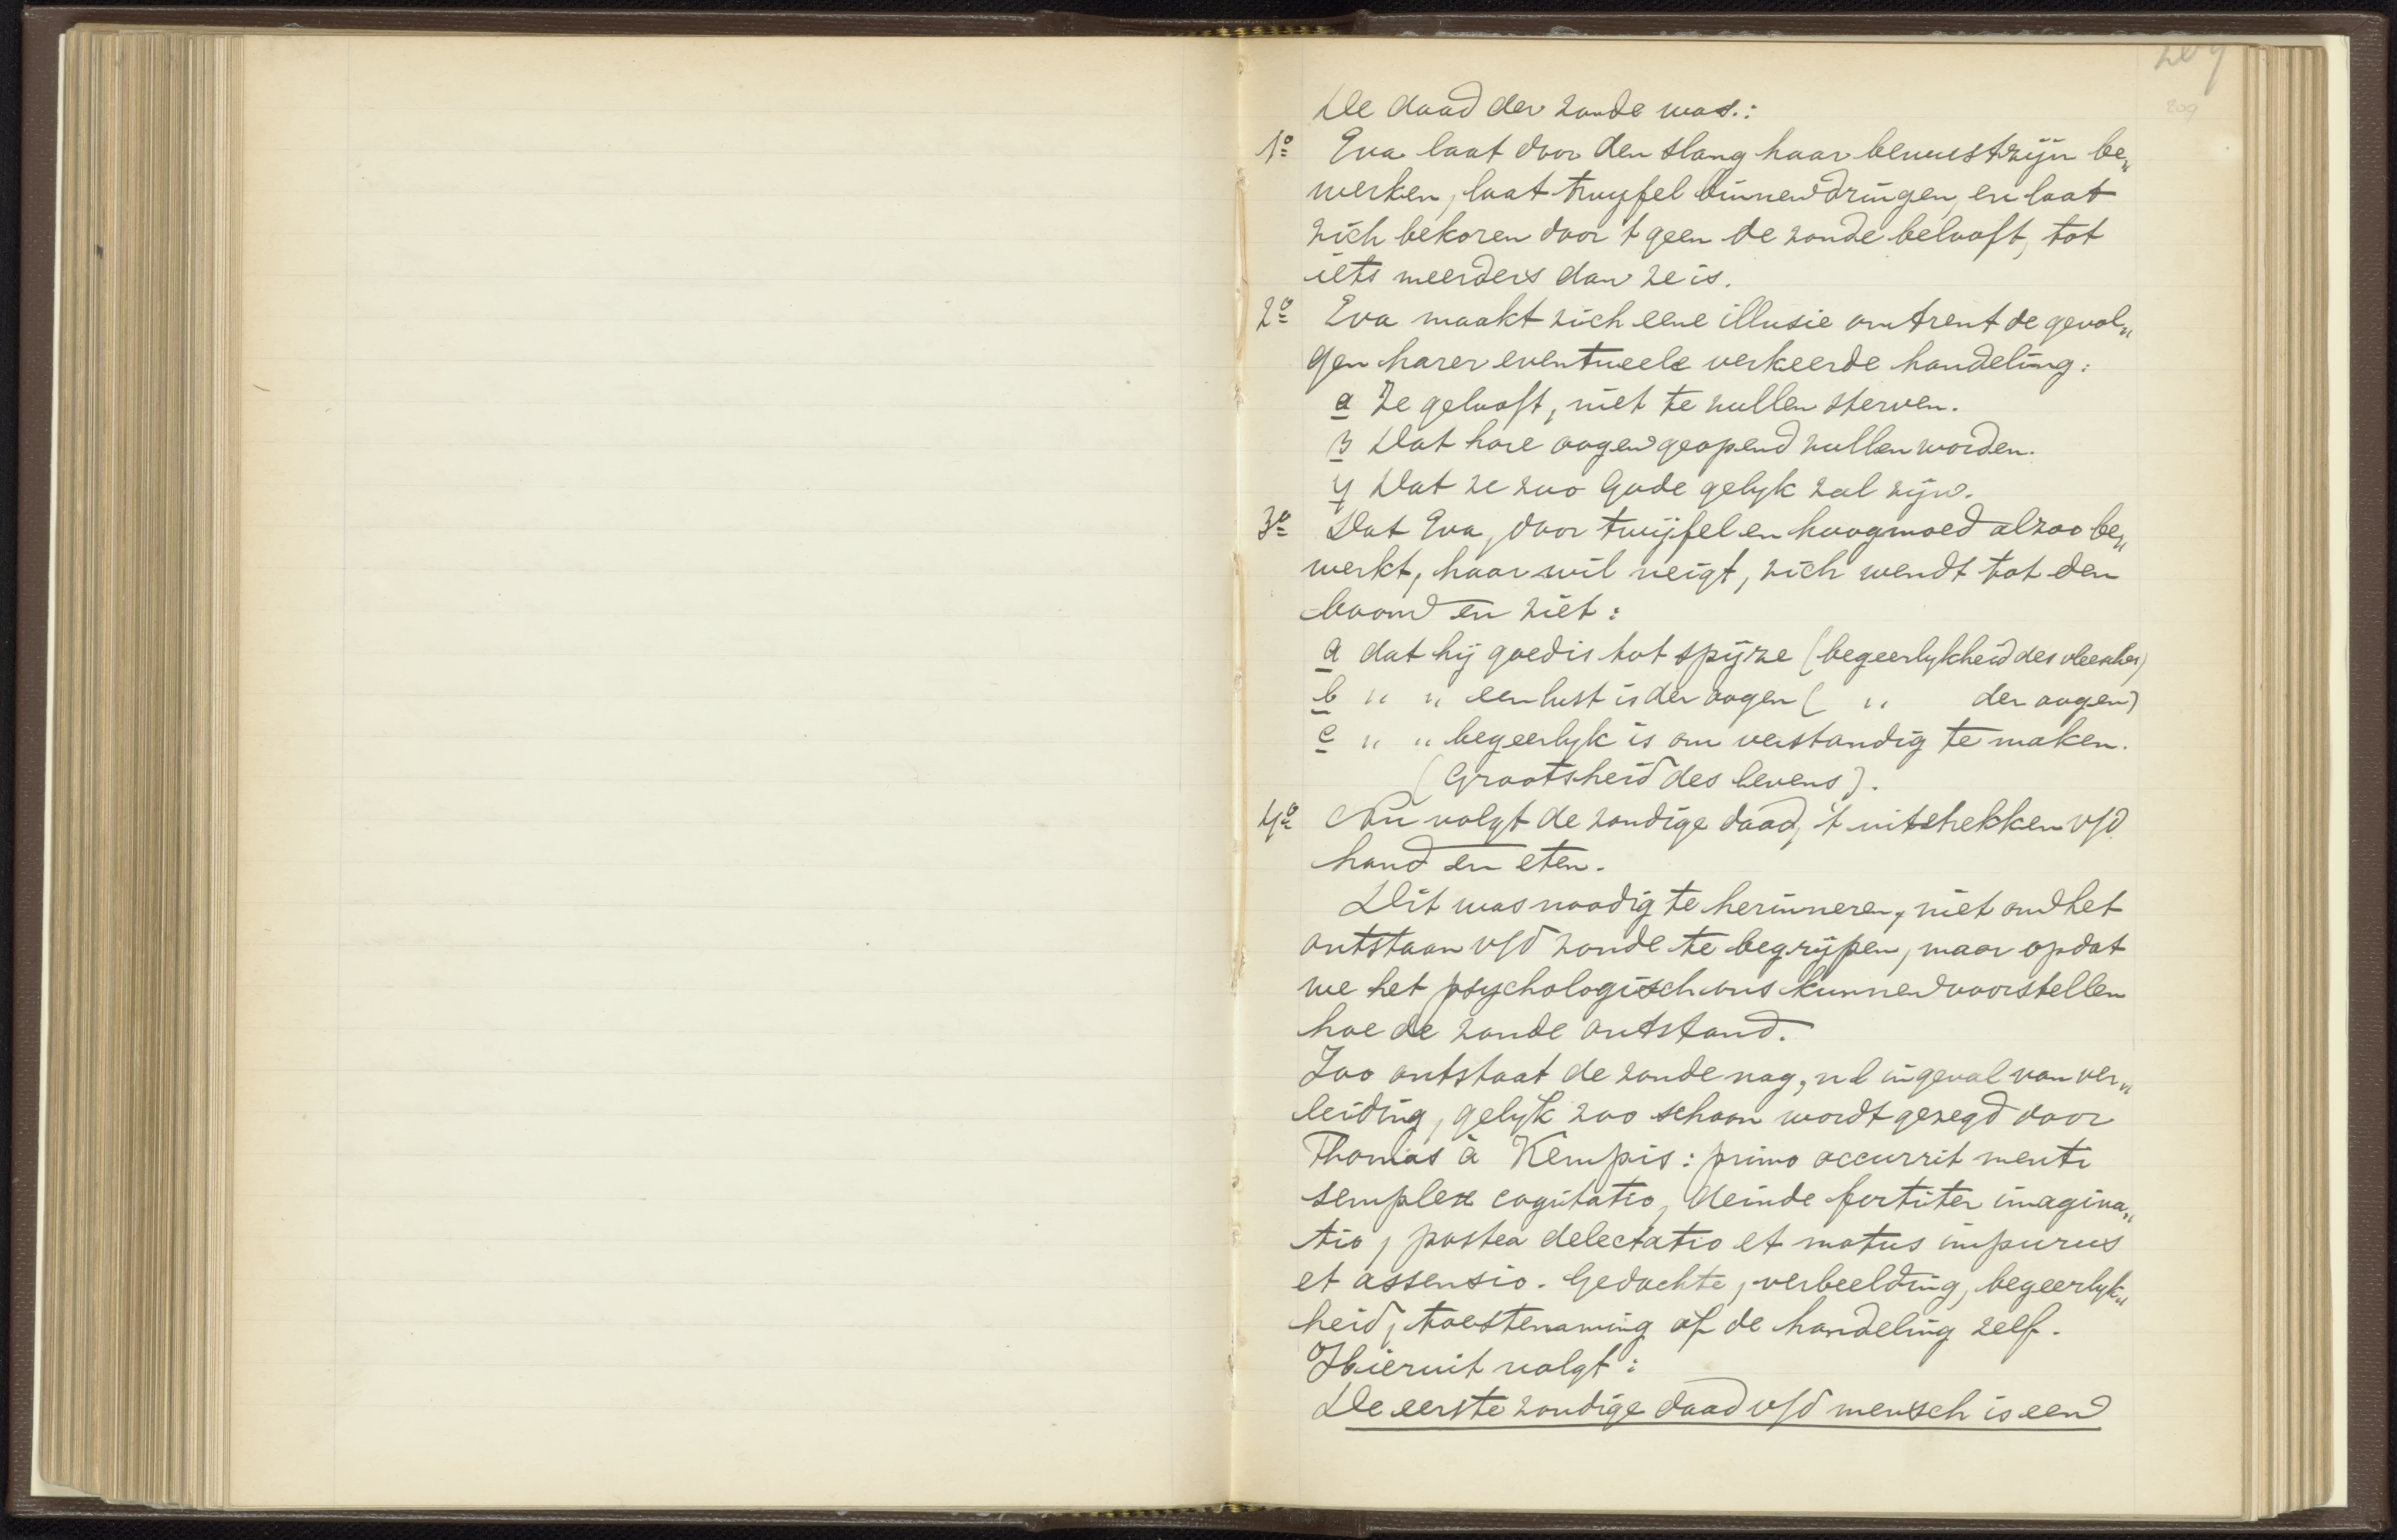 209
209
De daad der zonde was.:
1º Eva laat door den slang haar bewustzijn be„
werken, laat twyfel binnendringen, en laat
zich bekoren door 't geen de zonde belooft, tot
iets meerders dan ze is.
2º Eva maakt zich eene illusie omtrent de gevol„
gen harer eventueele verkeerde handeling:
α Ze gelooft, niet te zullen sterven.
β Dat hare oogen geopend zullen worden.
γ Dat ze zoo Gode gelyk zal zijn.
3º Dat Eva, door twijfel en hoogmoed alzoo be„
werkt, haar wil neigt, zich wendt tot den
boom en ziet:
a dat hij goed is tot spijze (begeerlykheid des vleesches)
b " " een lust is der oogen ( " der oogen)
c " " begeerlyk is om verstandig te maken.
(Grootsheid des levens).
4º Nu volgt de zondige daad, 't uitstrekken v/d
hand en eten.
Dit was noodig te herinneren, niet om het
ontstaan v/d zonde te begrijpen, maar opdat
we het psychologisch ons kunnen voorstellen
hoe de zonde ontstond.
Zoo ontstaat de zonde nog, nl ingeval van ver„
leiding, gelyk zoo schoon wordt gezegd door
Thomas à Kempis: primo occurrit menti
semplex cogitatio, deinde fortiter imagina„
tio, postea delectatio et motus impurus
et assensio. Gedachte, verbeelding, begeerlyk„
heid, toestemming of de handeling zelf.
Hieruit volgt:
De eerste zondige daad v/d mensch is een